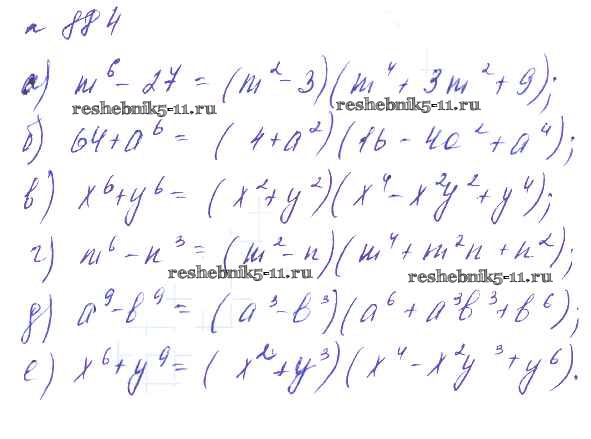 n 884
а) m⁶ - 27 = (m² - 3)(m⁴ + 3m² + 9);
reshebnik5-11.ru reshebnik5-11.ru
б) 64 + a⁶ = (4 + a²)(16 - 4a² + a⁴);
в) x⁶ + y⁶ = (x² + y²)(x⁴ - x²y² + y⁴);
г) m⁶ - n³ = (m² - n)(m⁴ + m²n + n²);
reshebnik5-11.ru reshebnik5-11.ru
д) a⁹ - b⁹ = (a³ - b³)(a⁶ + a³b³ + b⁶);
е) x⁶ + y⁹ = (x² + y³)(x⁴ - x²y³ + y⁶).